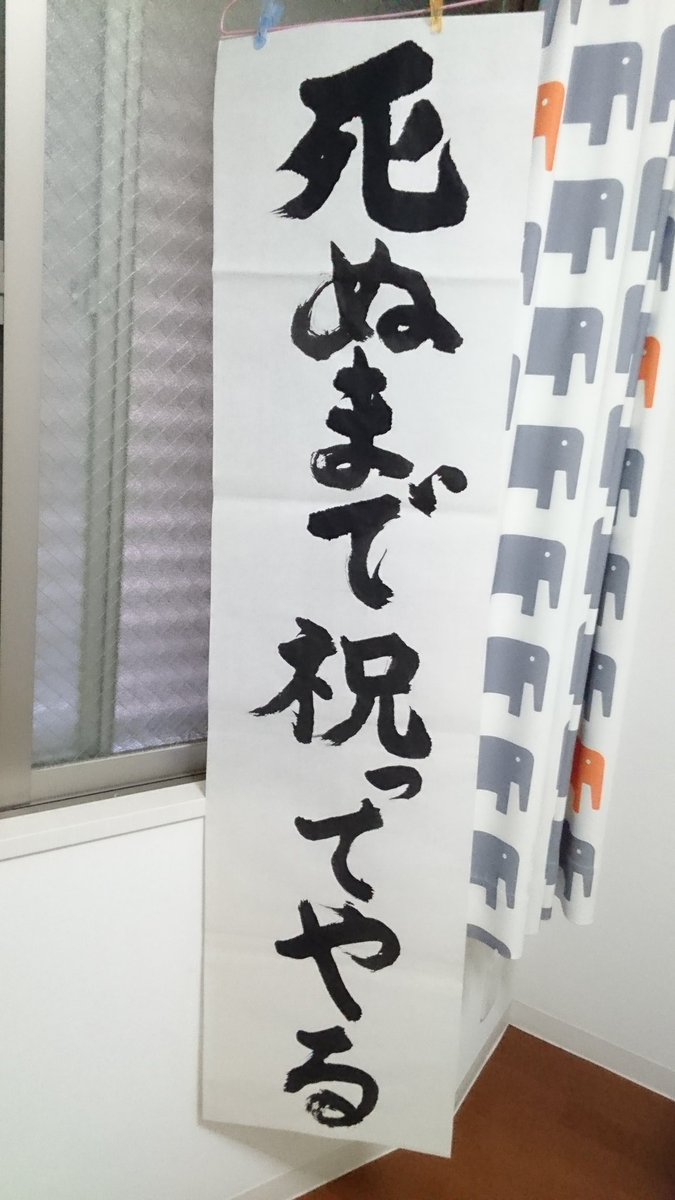 死ぬまで祝ってやる